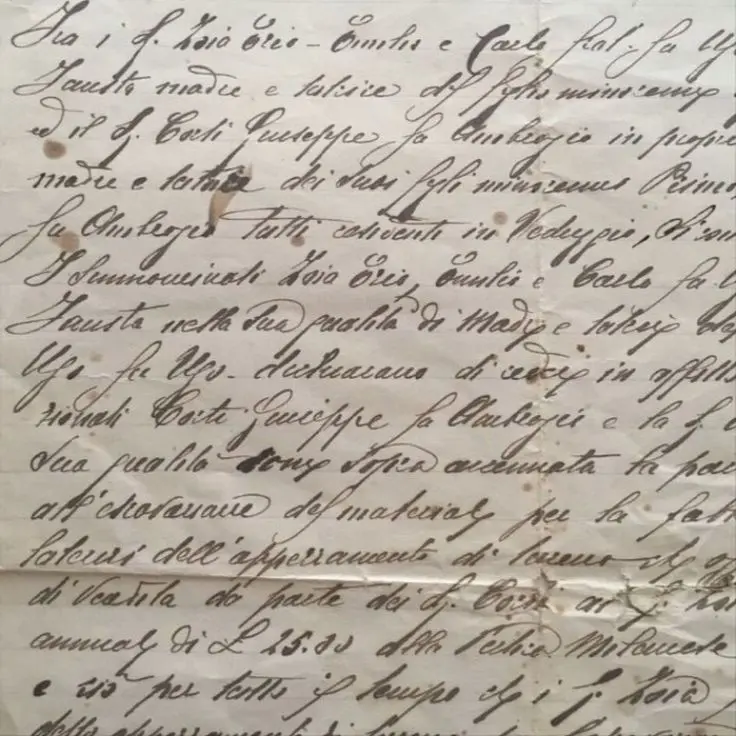 Fra i S. Zoia Erio - Emilio e Carlo frat. fu Ug
Fausta madre e tutrice del figlio minorenne
ed il S. Corti Giuseppe fu Ambrogio in propri
madre e tutrice dei suoi figli minorenni Primo,
fu Ambrogio tutti residenti in Veduggio, si con
I summenzionati Zoia Erio, Emilio e Carlo fu
Fausta nella sua qualità di madre e tutrice
Ugo fu Ugo - dichiarano di cedere in affitto
zionati Corti Giuseppe fu Ambrogio e la S.
sua qualità come sopra accennata la
all'escavazione del materiale per la fabb
laterizi dell'appezzamento di terreno
di vendita da parte dei S. Corti ai S. Zoi
annuale di £ 25.00 alla Pertica Milanese
e ciò per tutto il tempo che i S. Zoia
dello appezzamento di terreno